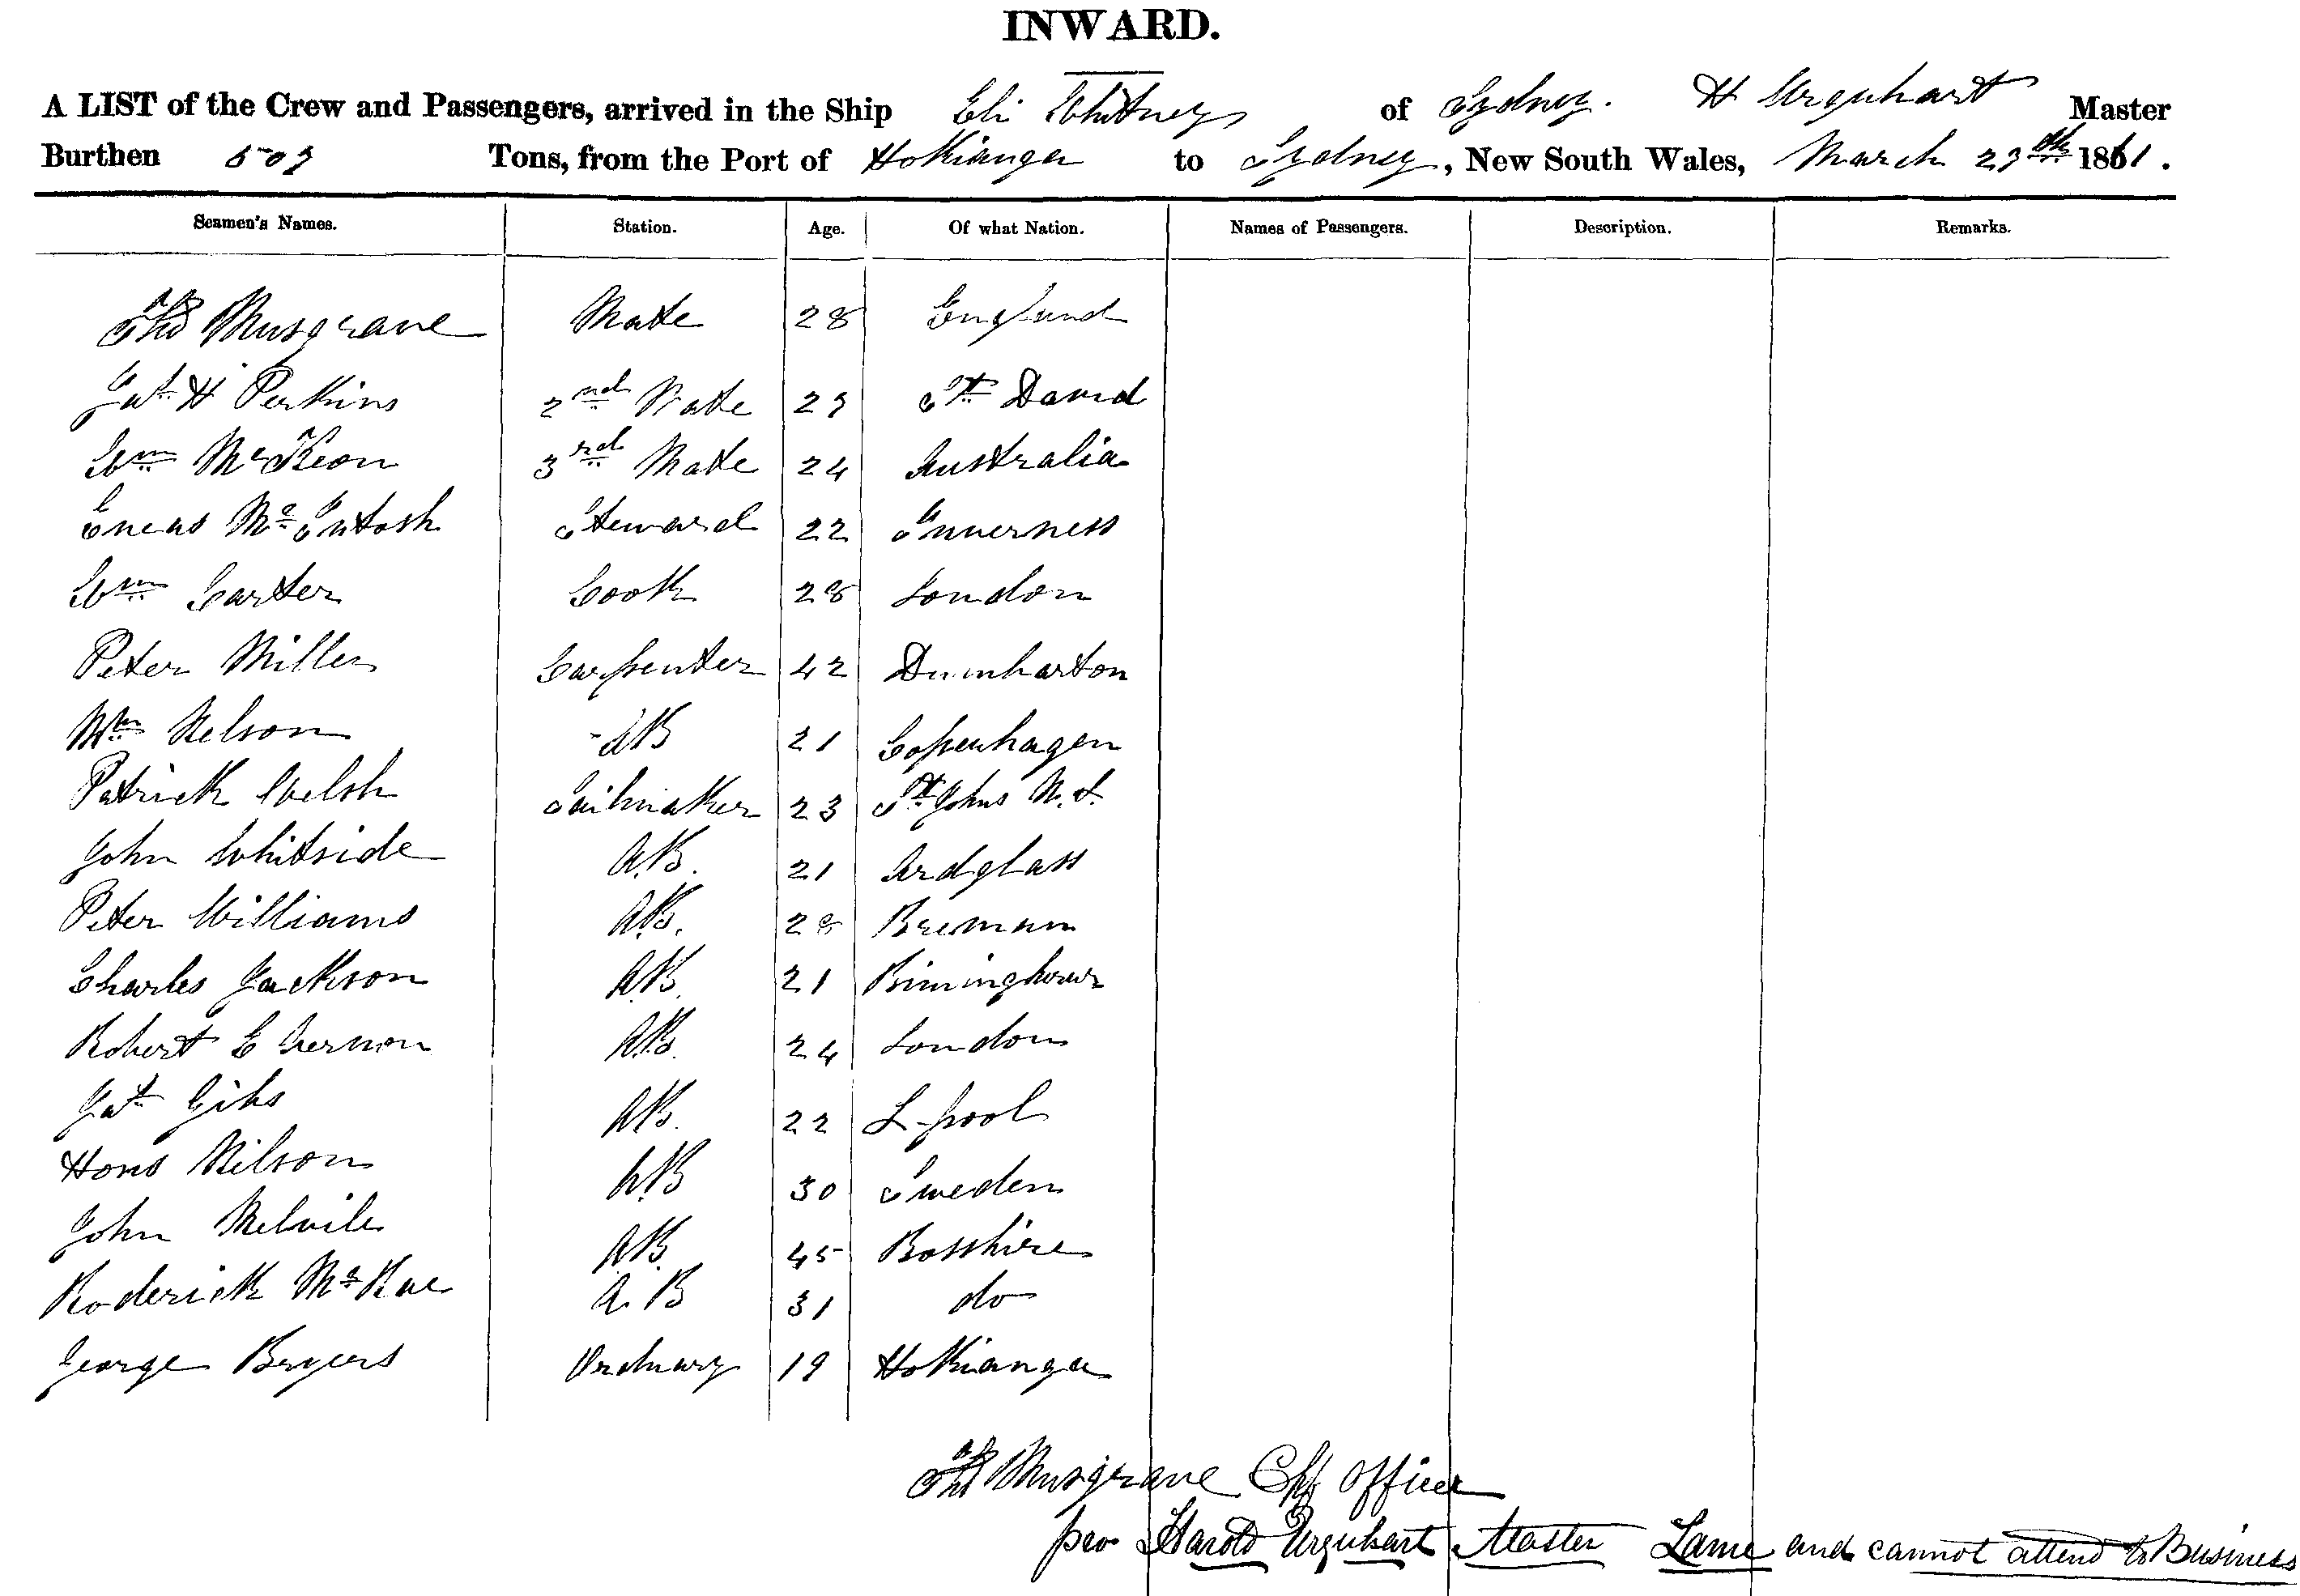 INWARD.
A LIST of the Crew and Passengers, arrived in the Ship Eli Whitney of Sydney. H Urquhart Master
Burthen 509 Tons, from the Port of Hokianga to Sydney, New South Wales, March 29th 1861.
Seamen's Names. Station. Age. Of what Nation. Names of Passengers. Description. Remarks.
Thos Musgrave Mate 28 England
H Perkins 2nd Mate 29 St David
Wm McKeon 3rd Mate 24 Australia
Eneas McIntosh Steward 22 Inverness
Wm Carter Cook 28 London
Peter Miller Carpenter 42 Dumbarton
Wm Nelson AB 21 Copenhagen
Patrick Welsh Sailmaker 23 St Johns N.F.
John Whitside A.B. 21 Ardglass
Peter Williams A.B. 28 Breman
Charles Jackson A.B. 21 Biminghour
Robert E Vernon A.B. 24 London
Gibs A.B. 22 L-pool
Hans Nilson A.B 30 Sweden
John Melvile A.B. 45 Rosshire
Roderick McRae A. B 31 do
George Bryers Ordnary 19 Hokianga
Thos Musgrave Chf Officer
pro Harold Urquhart Master Lame and cannot attend to Business